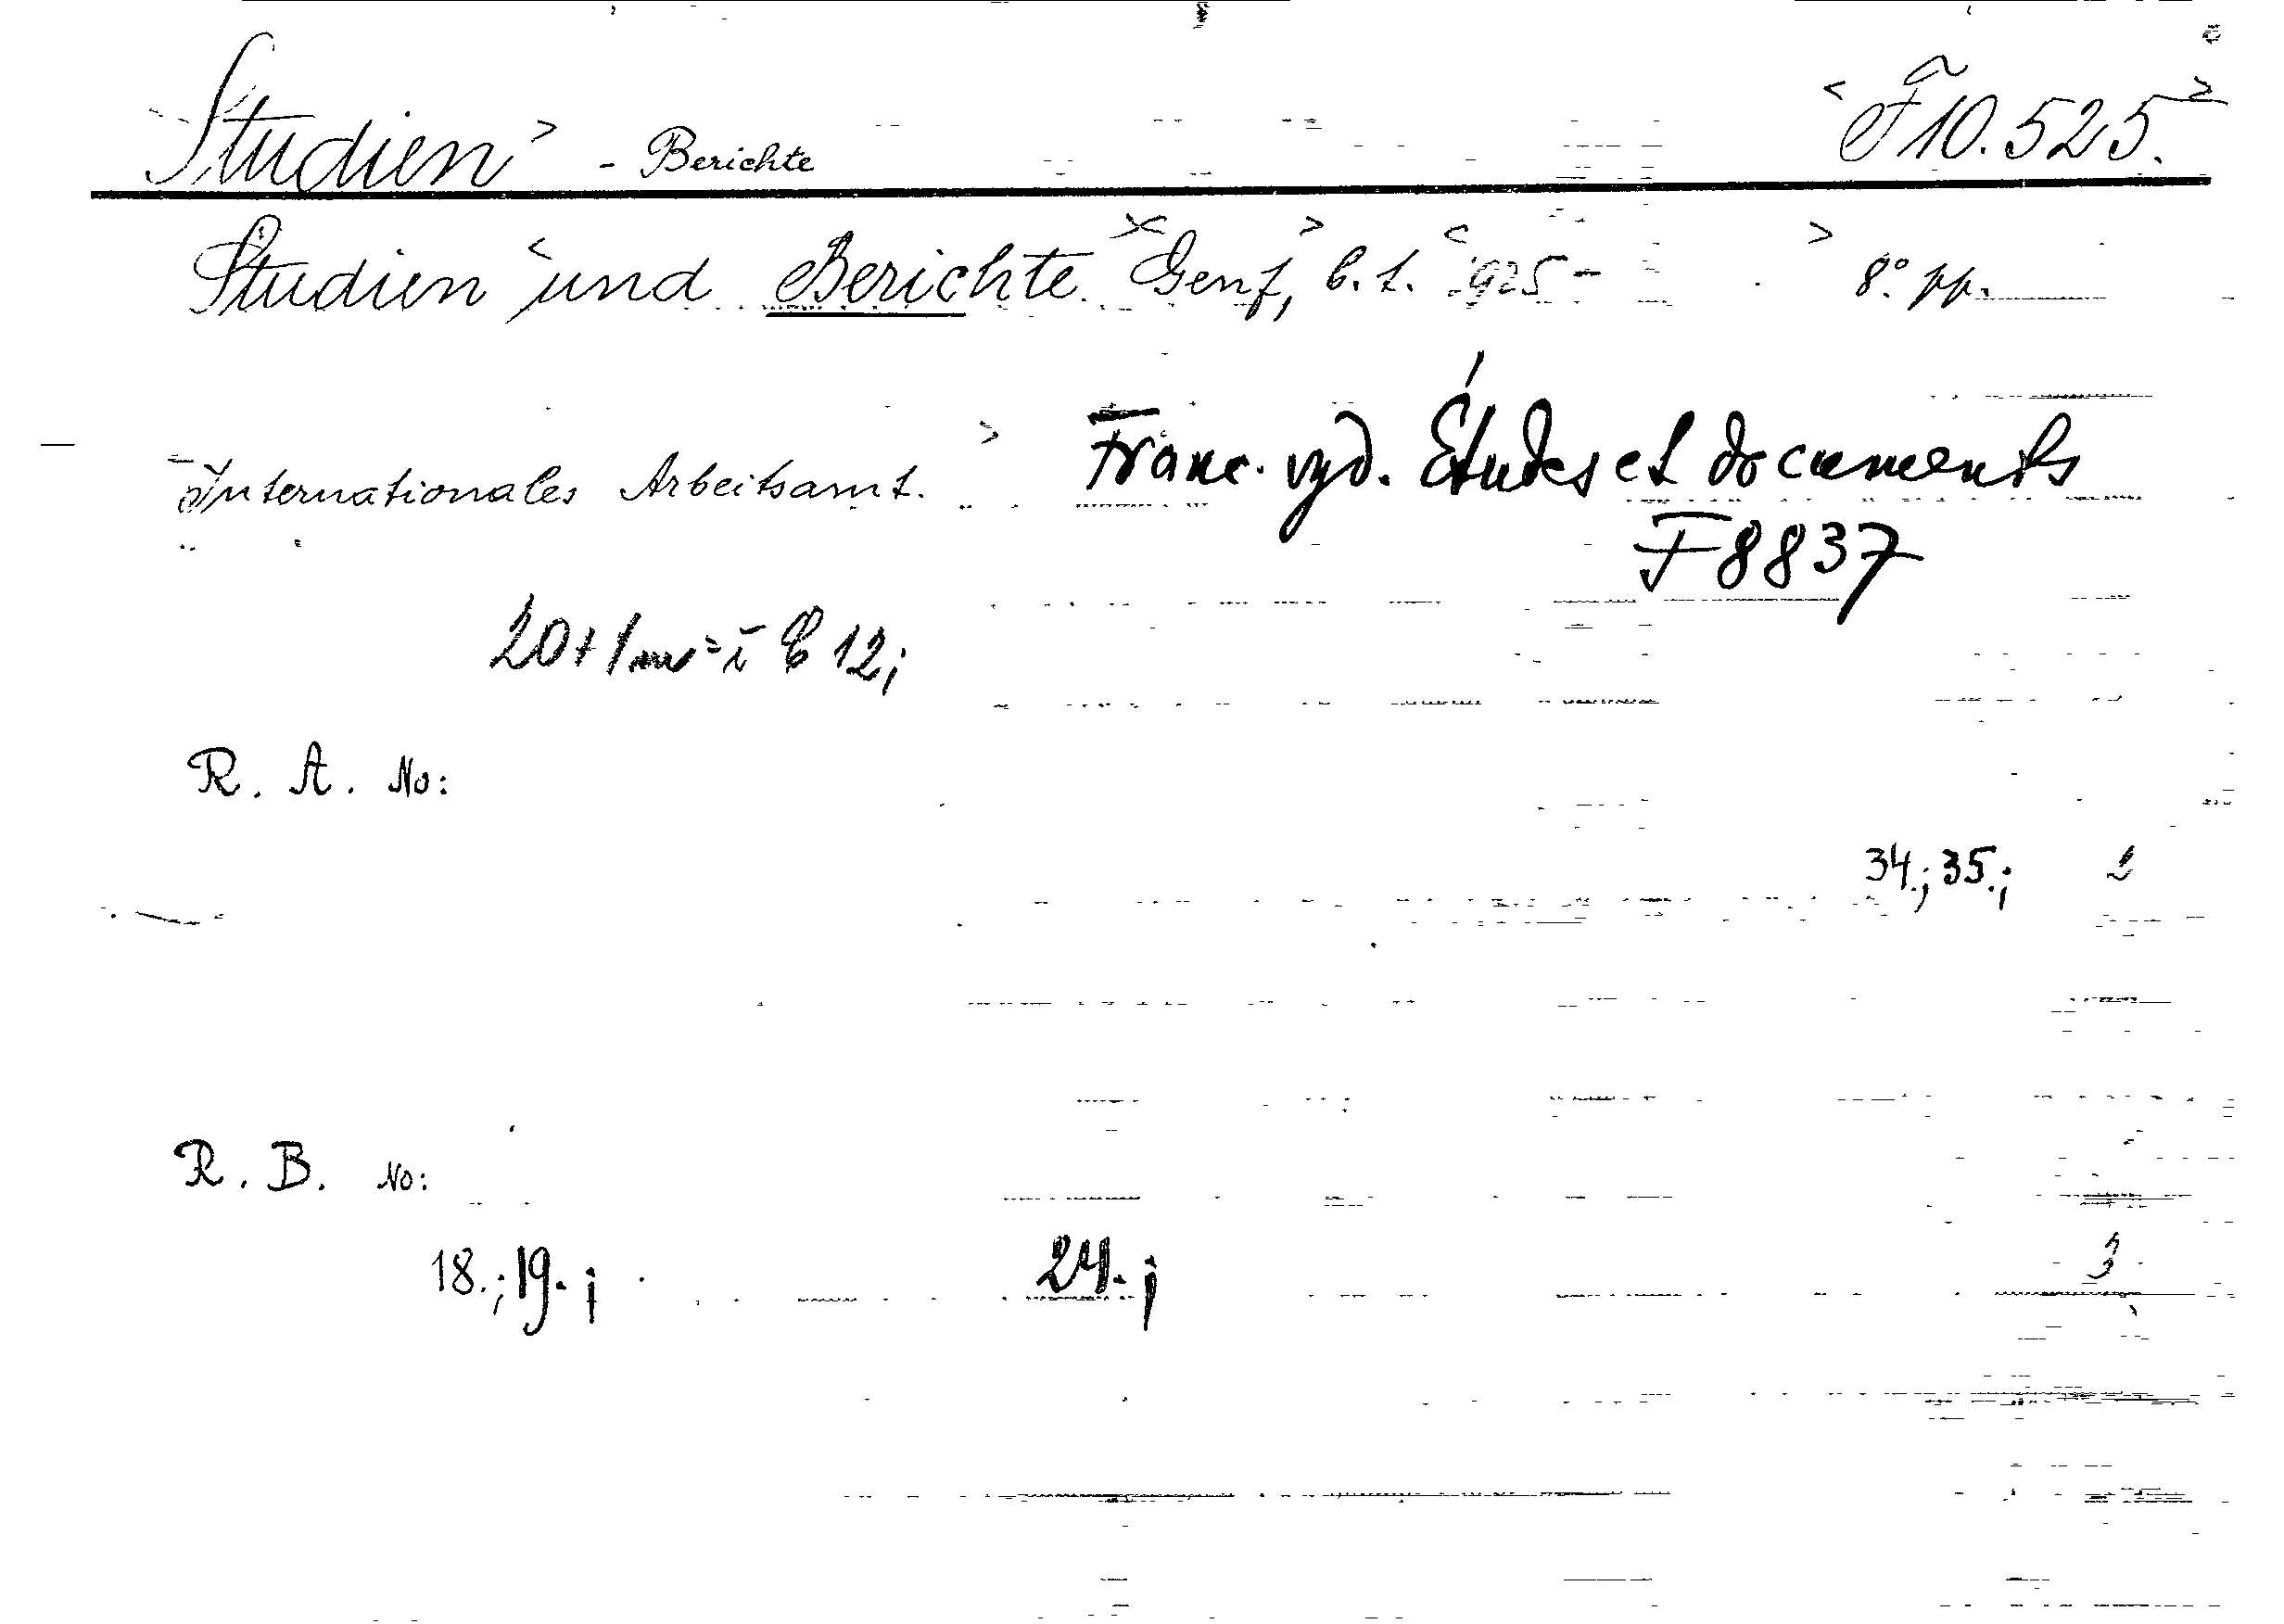 Studien - Berichte F 10.525.
Studien und Berichte. Genf, b. t. 1925 - 8º. pp.
Internationales Arbeitsamt. Franc. vyd. Études et documents
F 8837
20+1 12;
R. A. No:
34.; 35.; 2
R. B. No:
18.; 19.; 24.; 3